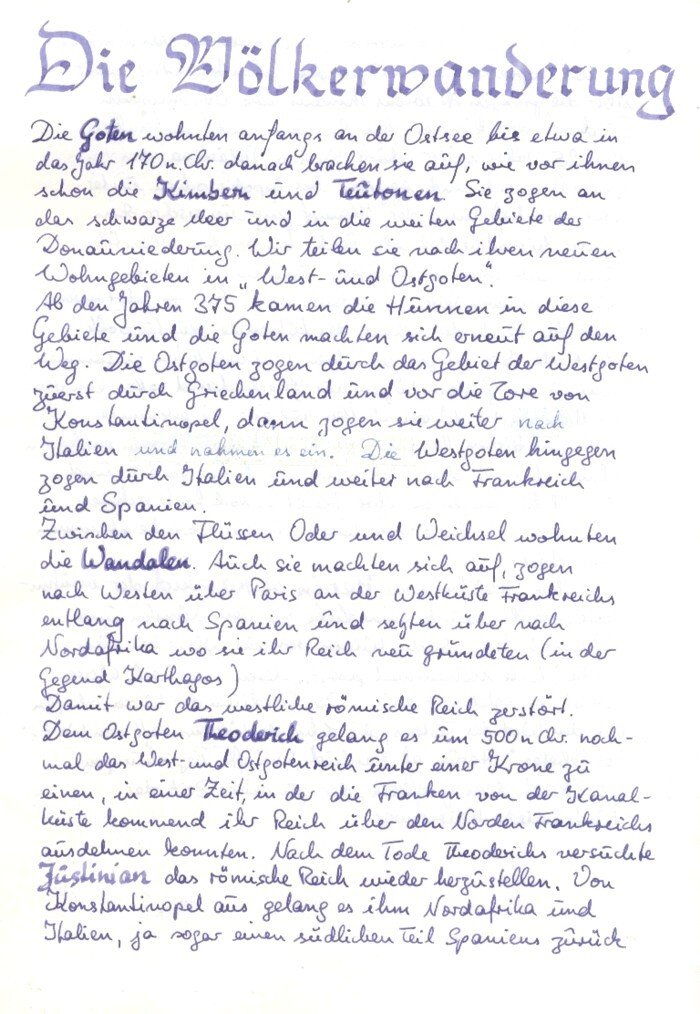 Die Völkerwanderung
Die Goten wohnten anfangs an der Ostsee bis etwa in
das Jahr 170 n. Chr. danach brachen sie auf, wie vor ihnen
schon die Kimbern und Teutonen. Sie zogen an
das schwarze Meer und in die weiten Gebiete der
Donauniederung. Wir teilen sie nach ihren neuen
Wohngebieten in „West- und Ostgoten".
Ab den Jahren 375 kamen die Hunnen in diese
Gebiete und die Goten machten sich erneut auf den
Weg. Die Ostgoten zogen durch das Gebiet der Westgoten
zuerst durch Griechenland und vor die Tore von
Konstantinopel, dann zogen sie weiter nach
Italien und nahmen es ein. Die Westgoten hingegen
zogen durch Italien und weiter nach Frankreich
und Spanien.
Zwischen den Flüssen Oder und Weichsel wohnten
die Wandalen. Auch sie machten sich auf, zogen
nach Westen über Paris an der Westküste Frankreichs
entlang nach Spanien und setzten über nach
Nordafrika wo sie ihr Reich neu gründeten (in der
Gegend Karthagos)
Damit war das westliche römische Reich zerstört.
Dem Ostgoten Theoderich gelang es um 500 n Chr. noch-
mal das West- und Ostgotenreich unter einer Krone zu
einen, in einer Zeit, in der die Franken von der Kanal-
küste kommend ihr Reich über den Norden Frankreichs
ausdehnen konnten. Nach dem Tode Theoderichs versuchte
Justinian das römische Reich wieder herzustellen. Von
Konstantinopel aus gelang es ihm Nordafrika und
Italien, ja sogar einen südlichen Teil Spaniens zurück